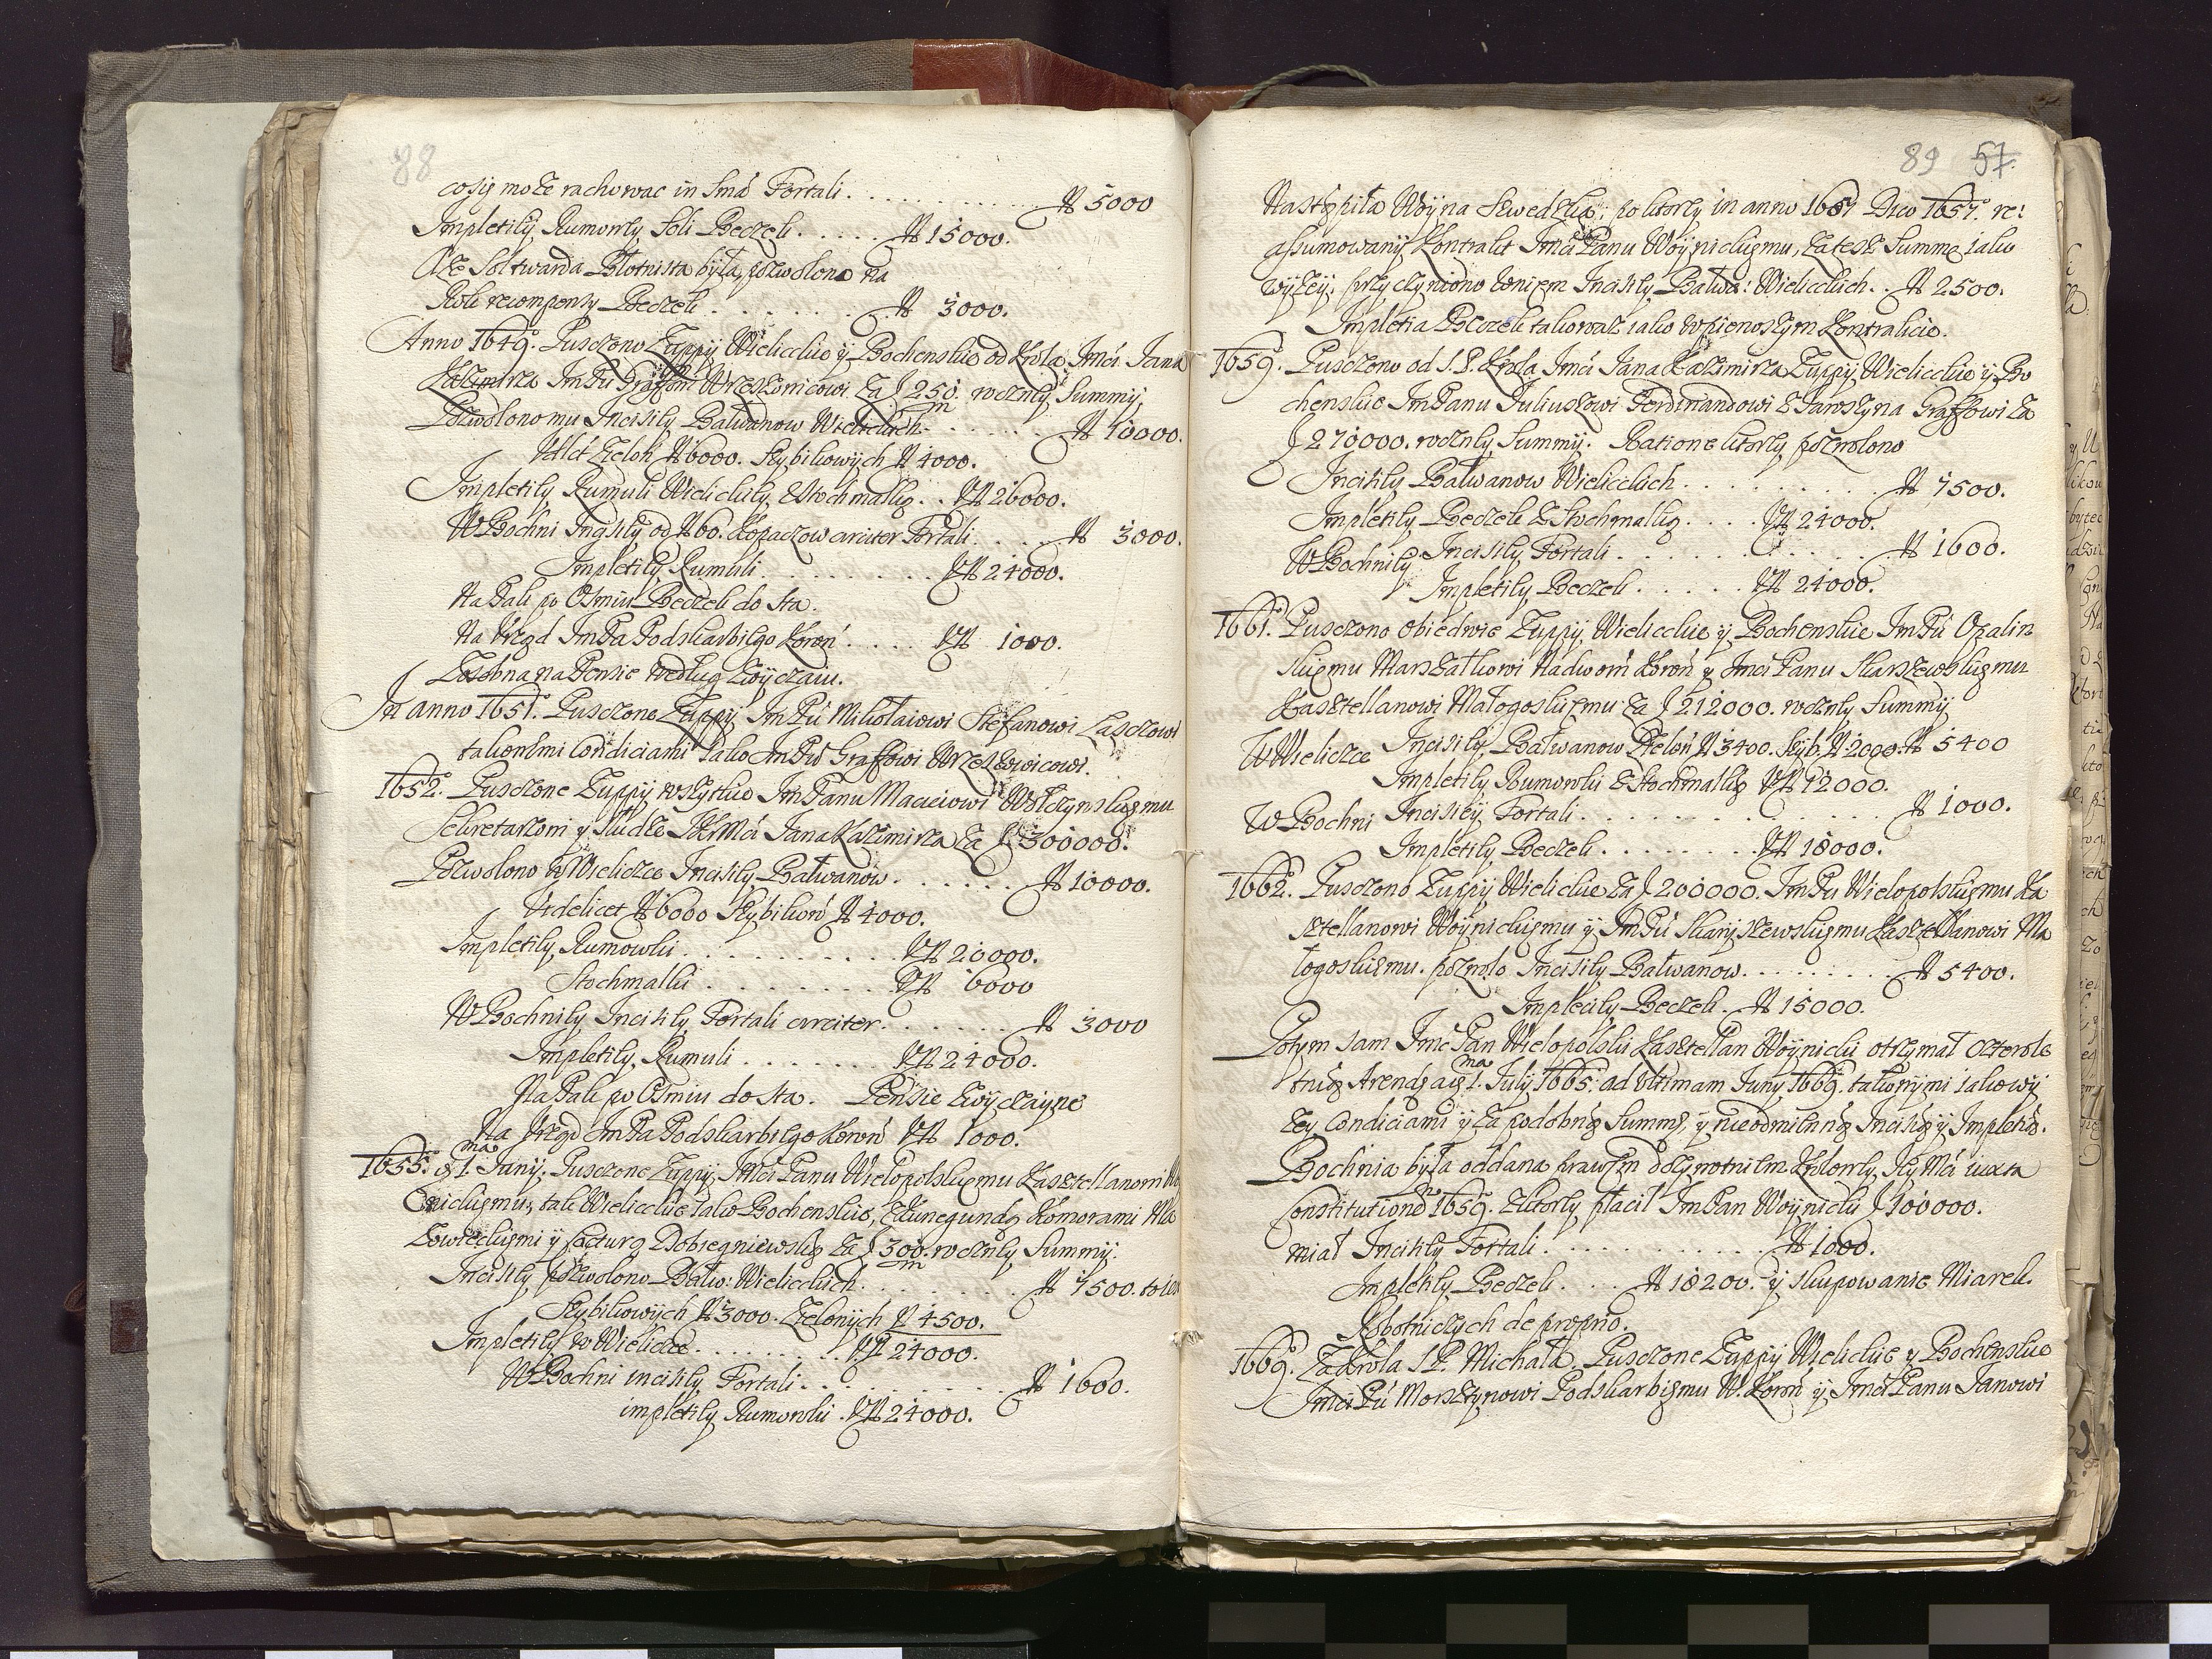 88
co się może rachowac in Smá Fortali . . . . . . . . . . . . . . № 5000
Impletiey Rumowey Soli Beczek . . . . . . № 15000.
Aże Sol twarda Błotnista była, pozwolono na
Rok recompensy Beczek . . . . . . . № 3000.
Anno 1649. Pusczono Zuppy Wielickie y Bochenskie od Krola Jmći Jana
Kazimirza Jm Pu Graffowi Wrzeszowicowi Za f 250 m. roczney Summy.
Pozwolono mu Incisiey Bałwanow Wielickich . . . . . № 10000.
Vdlct Zieloñ № 6000. Szybikowych № 4000.
Impletiey Rumuli Wielickiey Zstochmalką . . VN 26000.
W Bochni Incisiey od № 60. Kopaczow circiter Fortali . . . . . № 3000.
Impletiey Rumuli . . . . . . . . . VN 24000.
Na Pale po Osmiu Beczek do Sta.
Na Vrząd Jm Pa Podskarbiego Koroñ . . . . VN 1000.
Zosobna na Pensie według Zwyczaiu.
In anno 1651. Pusczone Zuppy Jm Pu Mikołaiowi Stefanowi Lasczowi
takiemimi Condiciami iako Jm Pu Graffowi Wrzeszowicowi.
1652. Pusczone Zuppy wszytkie Jm Panu Maciejowi Wołczynskiemu
Sekretarzowi y Słudze JKrMći Jana Kazimirza Za f 300000.
Pozwolono w Wieliczce Incisiey Bałwanow . . . . . . № 10000.
Videlicet № 6000 Szybikow № 4000.
Impletiey Rumowki . . . . . . . . . . VN 20000.
Stochmalki . . . . . . . . VN 6000
W Bochniey Incisiey Fortali circiter . . . . . . . № 3000
Impletiey Rumuli . . . . . . VN 24000.
Na Pale po Osmiu do Sta. Pensie Zwyczayne
Na Vrząd Jm Pa Podskarbiego Koroñ VN 1000.
1655. a 1 ma Juny. Pusczone Zuppy Jmći Panu Wielopolskiemu Kasztellanowi Woy
nickiemu, tak Wielickie iako Bochenskie, Z Kunegundą Komorami Ma
Zowieckiemi y facturą Dobiegniewską Za f 300 m. roczney Summy.
Incisiey pozwolono Bałw: Wielickich . . . . . . . № 7500.
Szybikowych № 3000. Zielonych № 4500.
Impletiey w Wieliczce . . . . . . . . VN 24000.
W Bochni incisiey Fortali . . . . . . . . . . . № 1600.
impletiey Rumowki . VN 24000.
89 57.
Nastąpiła Woyna Szwedzka; po ktorey in anno 1657 Dico 1657. re:
assumowany Kontrakt Jmći Panu Woynickiemu, za tesz Summę iako
wyżey; przyczyniono koniem Incisiey Bałwa: Wielickich . . № 2500.
Impletia Beczek takoważ iako w pierwszym Kontrakcie.
1659. Pusczono od S. P. Krola Jmći Jana Kazimirza Zuppy Wielickie y Bo
chenskie Jm Panu Juliuszowi Ferdinandowi Z Jaroszyna Graffowi Za
f 270000. roczney Summy. Ratione ktorey pozwolono
Incisiey Bałwanow Wielickich . . . . . . . . . . № 7500.
Impletiey Beczek Z Stochmalką . . . . VN 24000.
W Bochniey Incisiey Fortali . . . . . . . . . . № 1600.
Impletiey Beczek . . . . . VN 24000.
1661. Pusczono obiedwie Zuppy Wielickie y Bochenskie Jm Pu Opalin
skiemu Marszałkowi Nadworñ Koroñ y Jmći Panu Skarszewskiemu
Kasztellanowi Małogoskiemu Za f 212000. roczney Summy
W Wieliczce Incisiey Bałwanow Zieloñ № 3400. Szyb. № 2000. № 5400
Impletiey Rumowki Z Stochmalką VN 12000.
W Bochni Incisiey Fortali . . . . . . . . . . . № 1000.
Impletiey Beczek . . . . . . . VN 18000.
1662. Pusczono Zuppy Wielickie Za f 200000. Jm Pu Wielopolskiemu Ka
sztellanowi Woynickiemu y Jm Pu Skaryszewskiemu Kasztellanowi Ma
łogoskiemu. pozwolo Incisiey Bałwanow . . . . . . . . № 5400.
Impleciey Beczek. № 15000.
Potym sam Jmć Pan Wielopolski Kasztellan Woynicki otrzymał czterole
tnią Arendę a 1 ma July 1665. ad Vltimam Juny 1669. takowymi iako wy
zey Condiciami y za podobną Summę, y nieodmienną Incisią y Impletią.
Bochnia była oddana prawem dożywotniem Krolowey Jey Mći iuxta
Constitutionẽ 1659. Z ktorey płacił Jm Pan Woynicki f 100000.
miał Incisiey Fortali . . . . . . . . . . . № 1000.
Impletiey Beczek . . . . № 18200. y skupowanie Miarek
Robotniczych de proprio.
1669. Za Krola S. P. Michała. Pusczone Zuppy Wielickie y Bochenskie
Jmći Pu Morsztynowi Podskarbiemu W. Koroñ y Jmći Panu Janowi